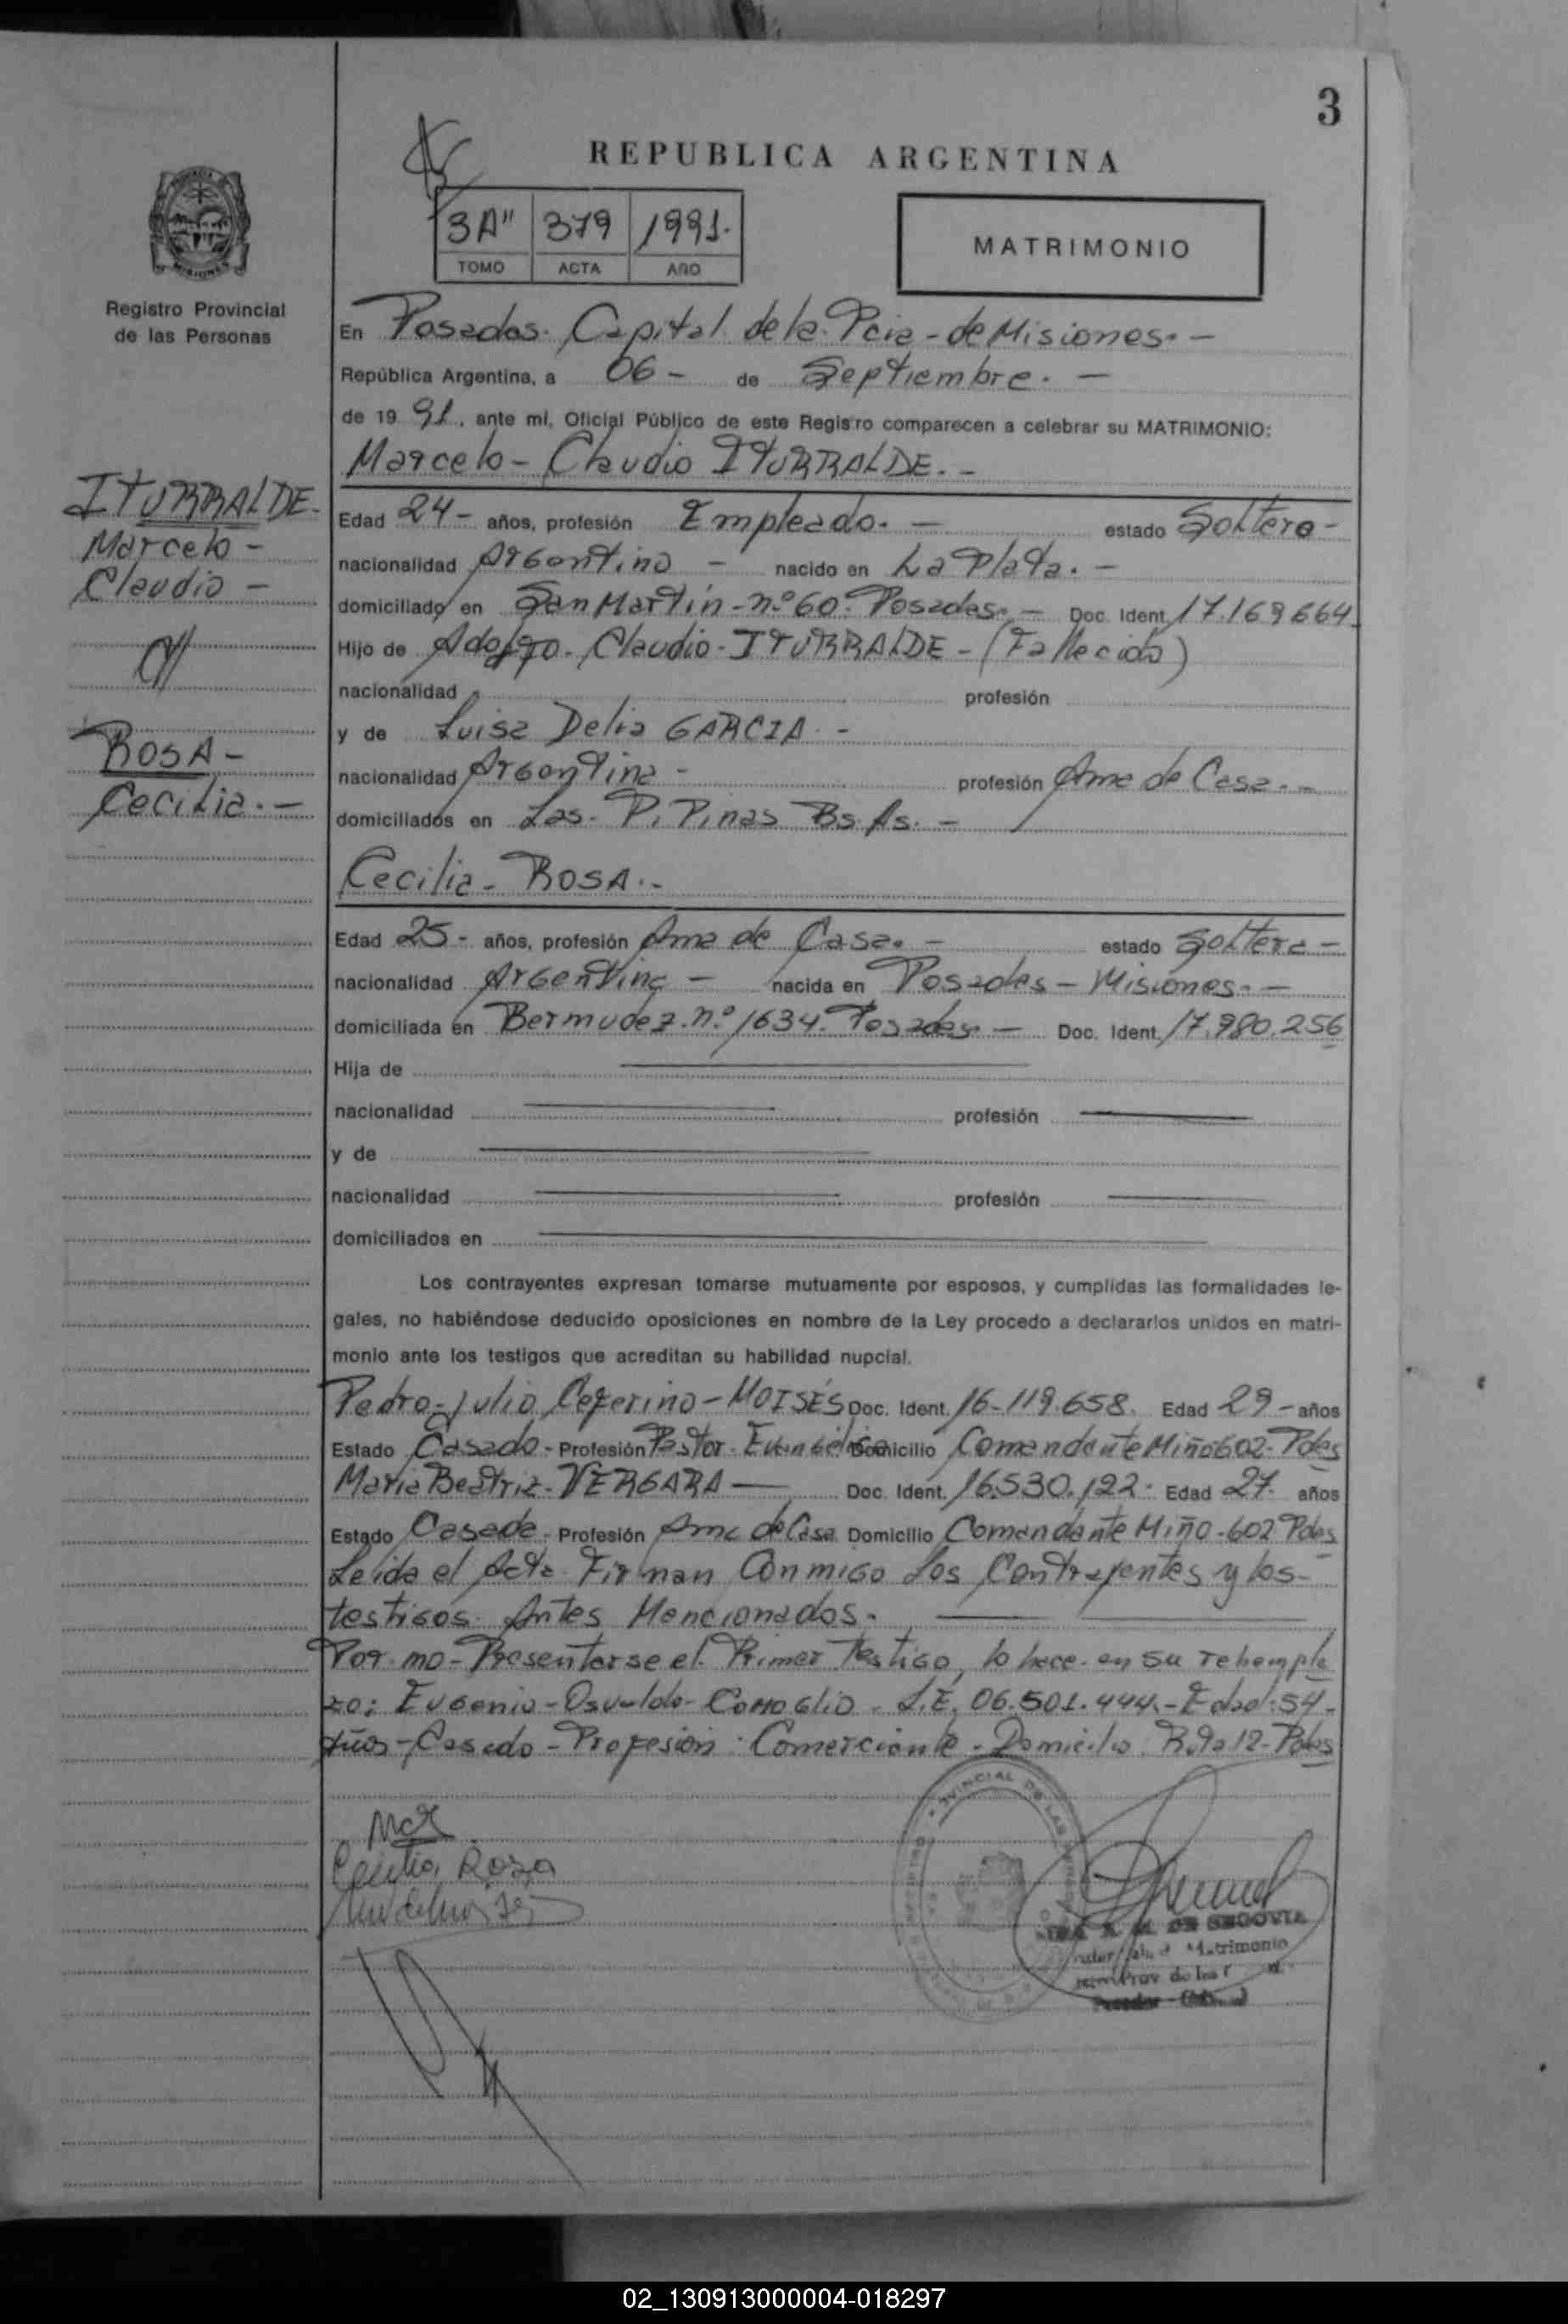 3
REPUBLICA ARGENTINA
3A" 379 1991.
TOMO ACTA AÑO
MATRIMONIO
Registro Provincial
de las Personas
En Posadas. Capital de la Pcia - de Misiones. -
República Argentina, a 06 - de Septiembre. -
de 19 91, ante mí, Oficial Público de este Registro comparecen a celebrar su MATRIMONIO:
Marcelo - Claudio ITURRALDE. -
ITURRALDE.
Marcelo -
Claudio -
ROSA -
Cecilia. -
Edad 24 - años, profesión Empleado. - estado Soltero -
nacionalidad Argentino - nacido en La Plata. -
domiciliado en San Martín - nº 60. Posadas. - Doc. Ident. 17.169.664.
Hijo de Adolfo. Claudio - ITURRALDE - (Fallecido)
nacionalidad profesión
y de Luisa Delia GARCIA. -
nacionalidad Argentina - profesión Ama de Casa. -
domiciliados en Las. Pipinas Bs. As. -
Cecilia - ROSA. -
Edad 25 - años, profesión Ama de Casa. - estado Soltera -
nacionalidad Argentina - nacida en Posadas - Misiones. -
domiciliada en Bermudez. nº 1634. Posadas. - Doc. Ident. 17.980.256
Hija de
nacionalidad profesión
y de
nacionalidad profesión
domiciliados en
Los contrayentes expresan tomarse mutuamente por esposos, y cumplidas las formalidades le-
gales, no habiéndose deducido oposiciones en nombre de la Ley procedo a declararlos unidos en matri-
monio ante los testigos que acreditan su habilidad nupcial.
Pedro - Julio Ceferino - MOISÉS Doc. Ident. 16-119.658. Edad 29 - años
Estado Casado - Profesión Pastor - Evangélico Domicilio Comandante Miño 602 - Pdas
Maria Beatriz - VERGARA - Doc. Ident. 16.530.122 - Edad 27. años
Estado Casada - Profesión Ama de Casa Domicilio Comandante Miño - 602 Pdas
Leida el Acta. Firman Conmigo Los Contrayentes y los -
testigos. Antes Mencionados.
Por. no - Presentarse el. Primer Testigo, lo hace - en su rehempla
zo: Eugenio - Osvaldo - Comoglio - L.E. 06.501.444. - Edad: 54 -
Años - Casado - Profesión : Comerciante - Domicilio. Ruta 12 - Pdas
Cecilia Rosa
DE SEGOVIA
02_130913000004-018297